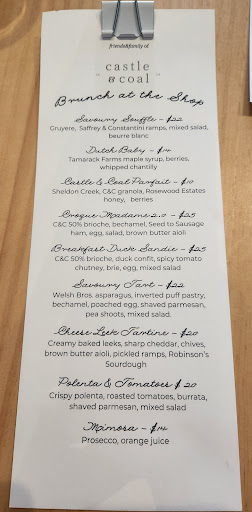 friends&family of
castle
& coal
Brunch at the Shop
Savoury Souffle - $22
Gruyere, Saffrey & Constantini ramps, mixed salad,
beurre blanc
Dutch Baby - $14
Tamarack Farms maple syrup, berries,
whipped chantilly
Castle & Coal Parfait - $10
Sheldon Creek, C&C granola, Rosewood Estates
honey, berries
Croque Madame 2.0 - $25
C&C 50% brioche, bechamel, Seed to Sausage
ham, egg, salad, brown butter aioli
Breakfast Duck Sandie - $25
C&C 50% brioche, duck confit, spicy tomato
chutney, brie, egg, mixed salad
Savoury Tart - $22
Welsh Bros. asparagus, inverted puff pastry,
bechamel, poached egg, shaved parmesan,
pea shoots, mixed salad.
Cheese Leek Tartine - $20
Creamy baked leeks, sharp cheddar, chives,
brown butter aioli, pickled ramps, Robinson's
Sourdough
Polenta & Tomatoes $20
Crispy polenta, roasted tomatoes, burrata,
shaved parmesan, mixed salad
Mimosa - $14
Prosecco, orange juice